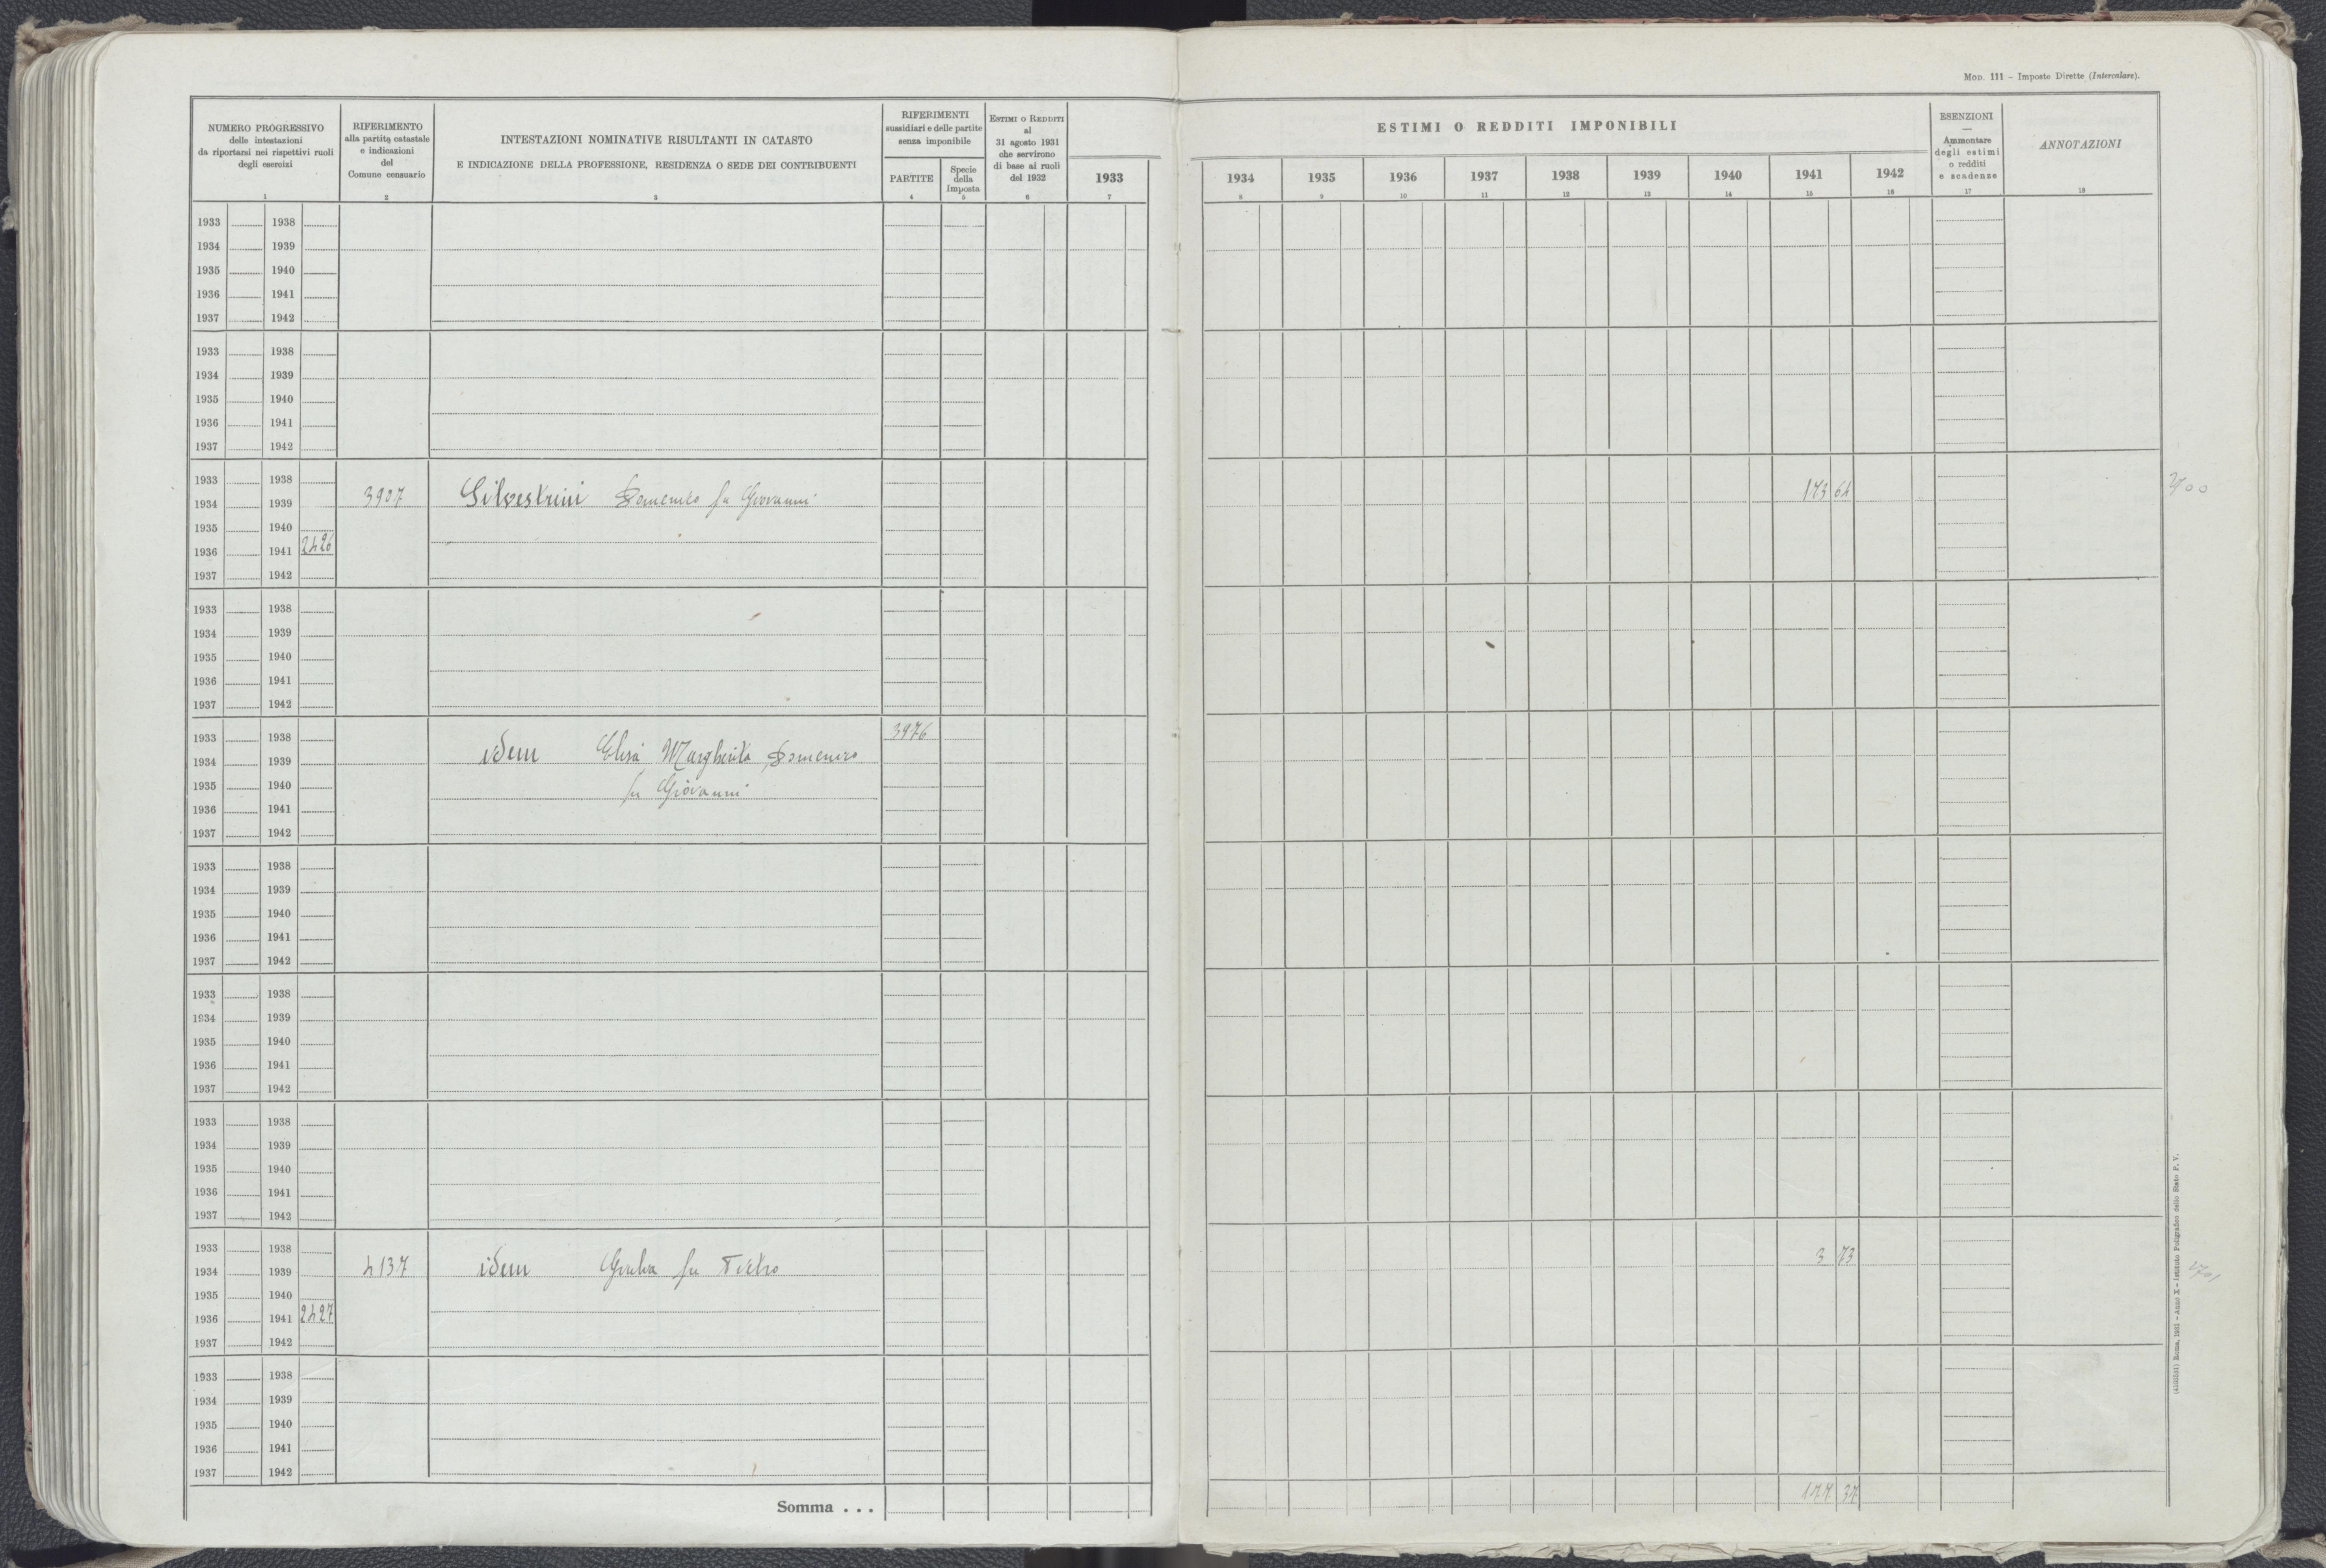 MOD. 111 – Imposte Dirette (Intercalare).
NUMERO PROGRESSIVO
delle intestazioni
da riportarsi nei rispettivi ruoli
degli esercizi
1
RIFERIMENTO
alla partita catastale
e indicazioni
del
Comune censuario
2
INTESTAZIONI NOMINATIVE RISULTANTI IN CATASTO
E INDICAZIONE DELLA PROFESSIONE, RESIDENZA O SEDE DEI CONTRIBUENTI
3
RIFERIMENTI
sussidiari e delle partite
senza imponibile
PARTITE
4
Specie
della
Imposta
5
ESTIMI O REDDITI
al
31 agosto 1931
che servirono
di base ai ruoli
del 1932
6
1933
7
ESTIMI O REDDITI IMPONIBILI
1934 1935 1936 1937 1938 1939 1940 1941 1942
8 9 10 11 12 13 14 15 16
ESENZIONI
—
Ammontare
degli estimi
o redditi
e scadenze
17
ANNOTAZIONI
18
1933 1938
1934 1939
1935 1940
1936 1941
1937 1942
1933 1938
1934 1939
1935 1940
1936 1941
1937 1942
1933 1938
1934 1939 3907 Silvestrini Domenico fu Giovanni 173 64
1935 1940
1936 1941 2426
1937 1942
1933 1938
1934 1939
1935 1940
1936 1941
1937 1942
1933 1938 3976
1934 1939 idem Elisa Margherita Domenico
1935 1940 fu Giovanni
1936 1941
1937 1942
1933 1938
1934 1939
1935 1940
1936 1941
1937 1942
1933 1938
1934 1939
1935 1940
1936 1941
1937 1942
1933 1938
1934 1939
1935 1940
1936 1941
1937 1942
1933 1938
1934 1939 4137 idem Giulia fu Pietro 3 73
1935 1940
1936 1941 2427
1937 1942
1933 1938
1934 1939
1935 1940
1936 1941
1937 1942
Somma . . . 177 37
(4103351) Roma, 1931 – Anno X – Istituto Poligrafico dello Stato P. V.